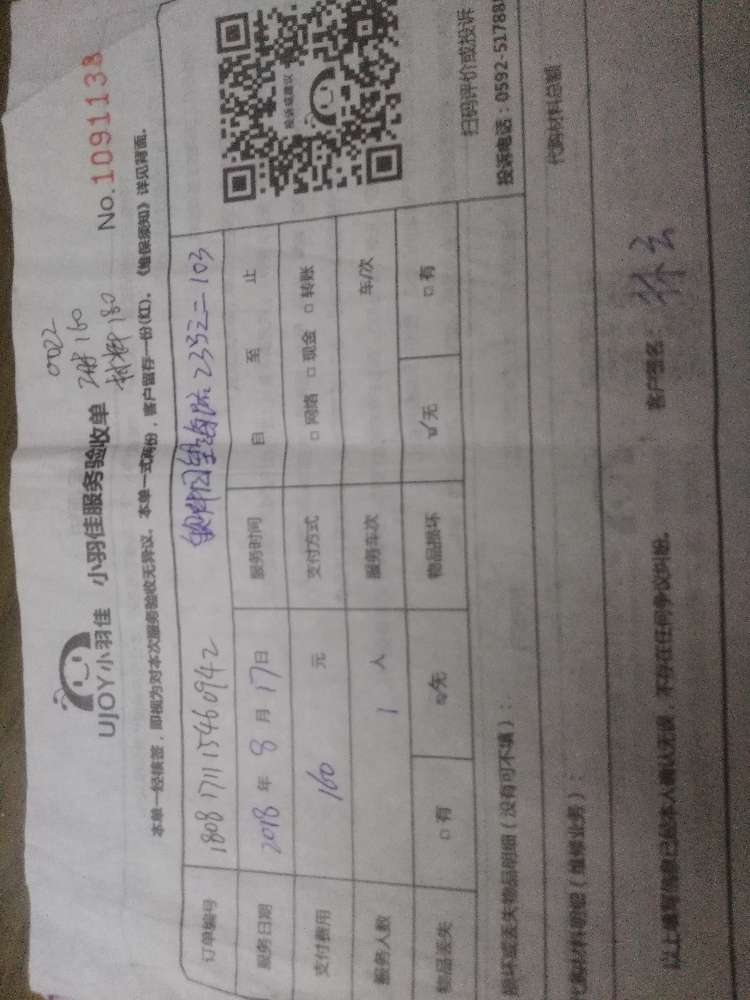 0022
工时160
材料180
UJOY小羽佳 小羽佳服务验收单 No.1091138
本单一经核签，即视为对本次服务验收无异议。本单一式两份，客户留存一份(红)。《维保须知》详见背面。
订单编号 18081711115460942 里海院233之二103
服务日期 2018年8月17日 服务时间 自 至 止
支付费用 160 元 支付方式 □网络 □现金 □转账
服务人数 1 人 服务车次 车/次
物品丢失 □有 ☑无 物品损坏 ☑无 □有
投诉或建议
扫码评价或投诉
投诉电话：0592-51788
损坏或丢失物品明细（没有可不填）：
代购材料明细（维修业务）： 代购材料总额
以上填写信息已经本人确认无误，不存在任何争议纠纷。 客户签名：